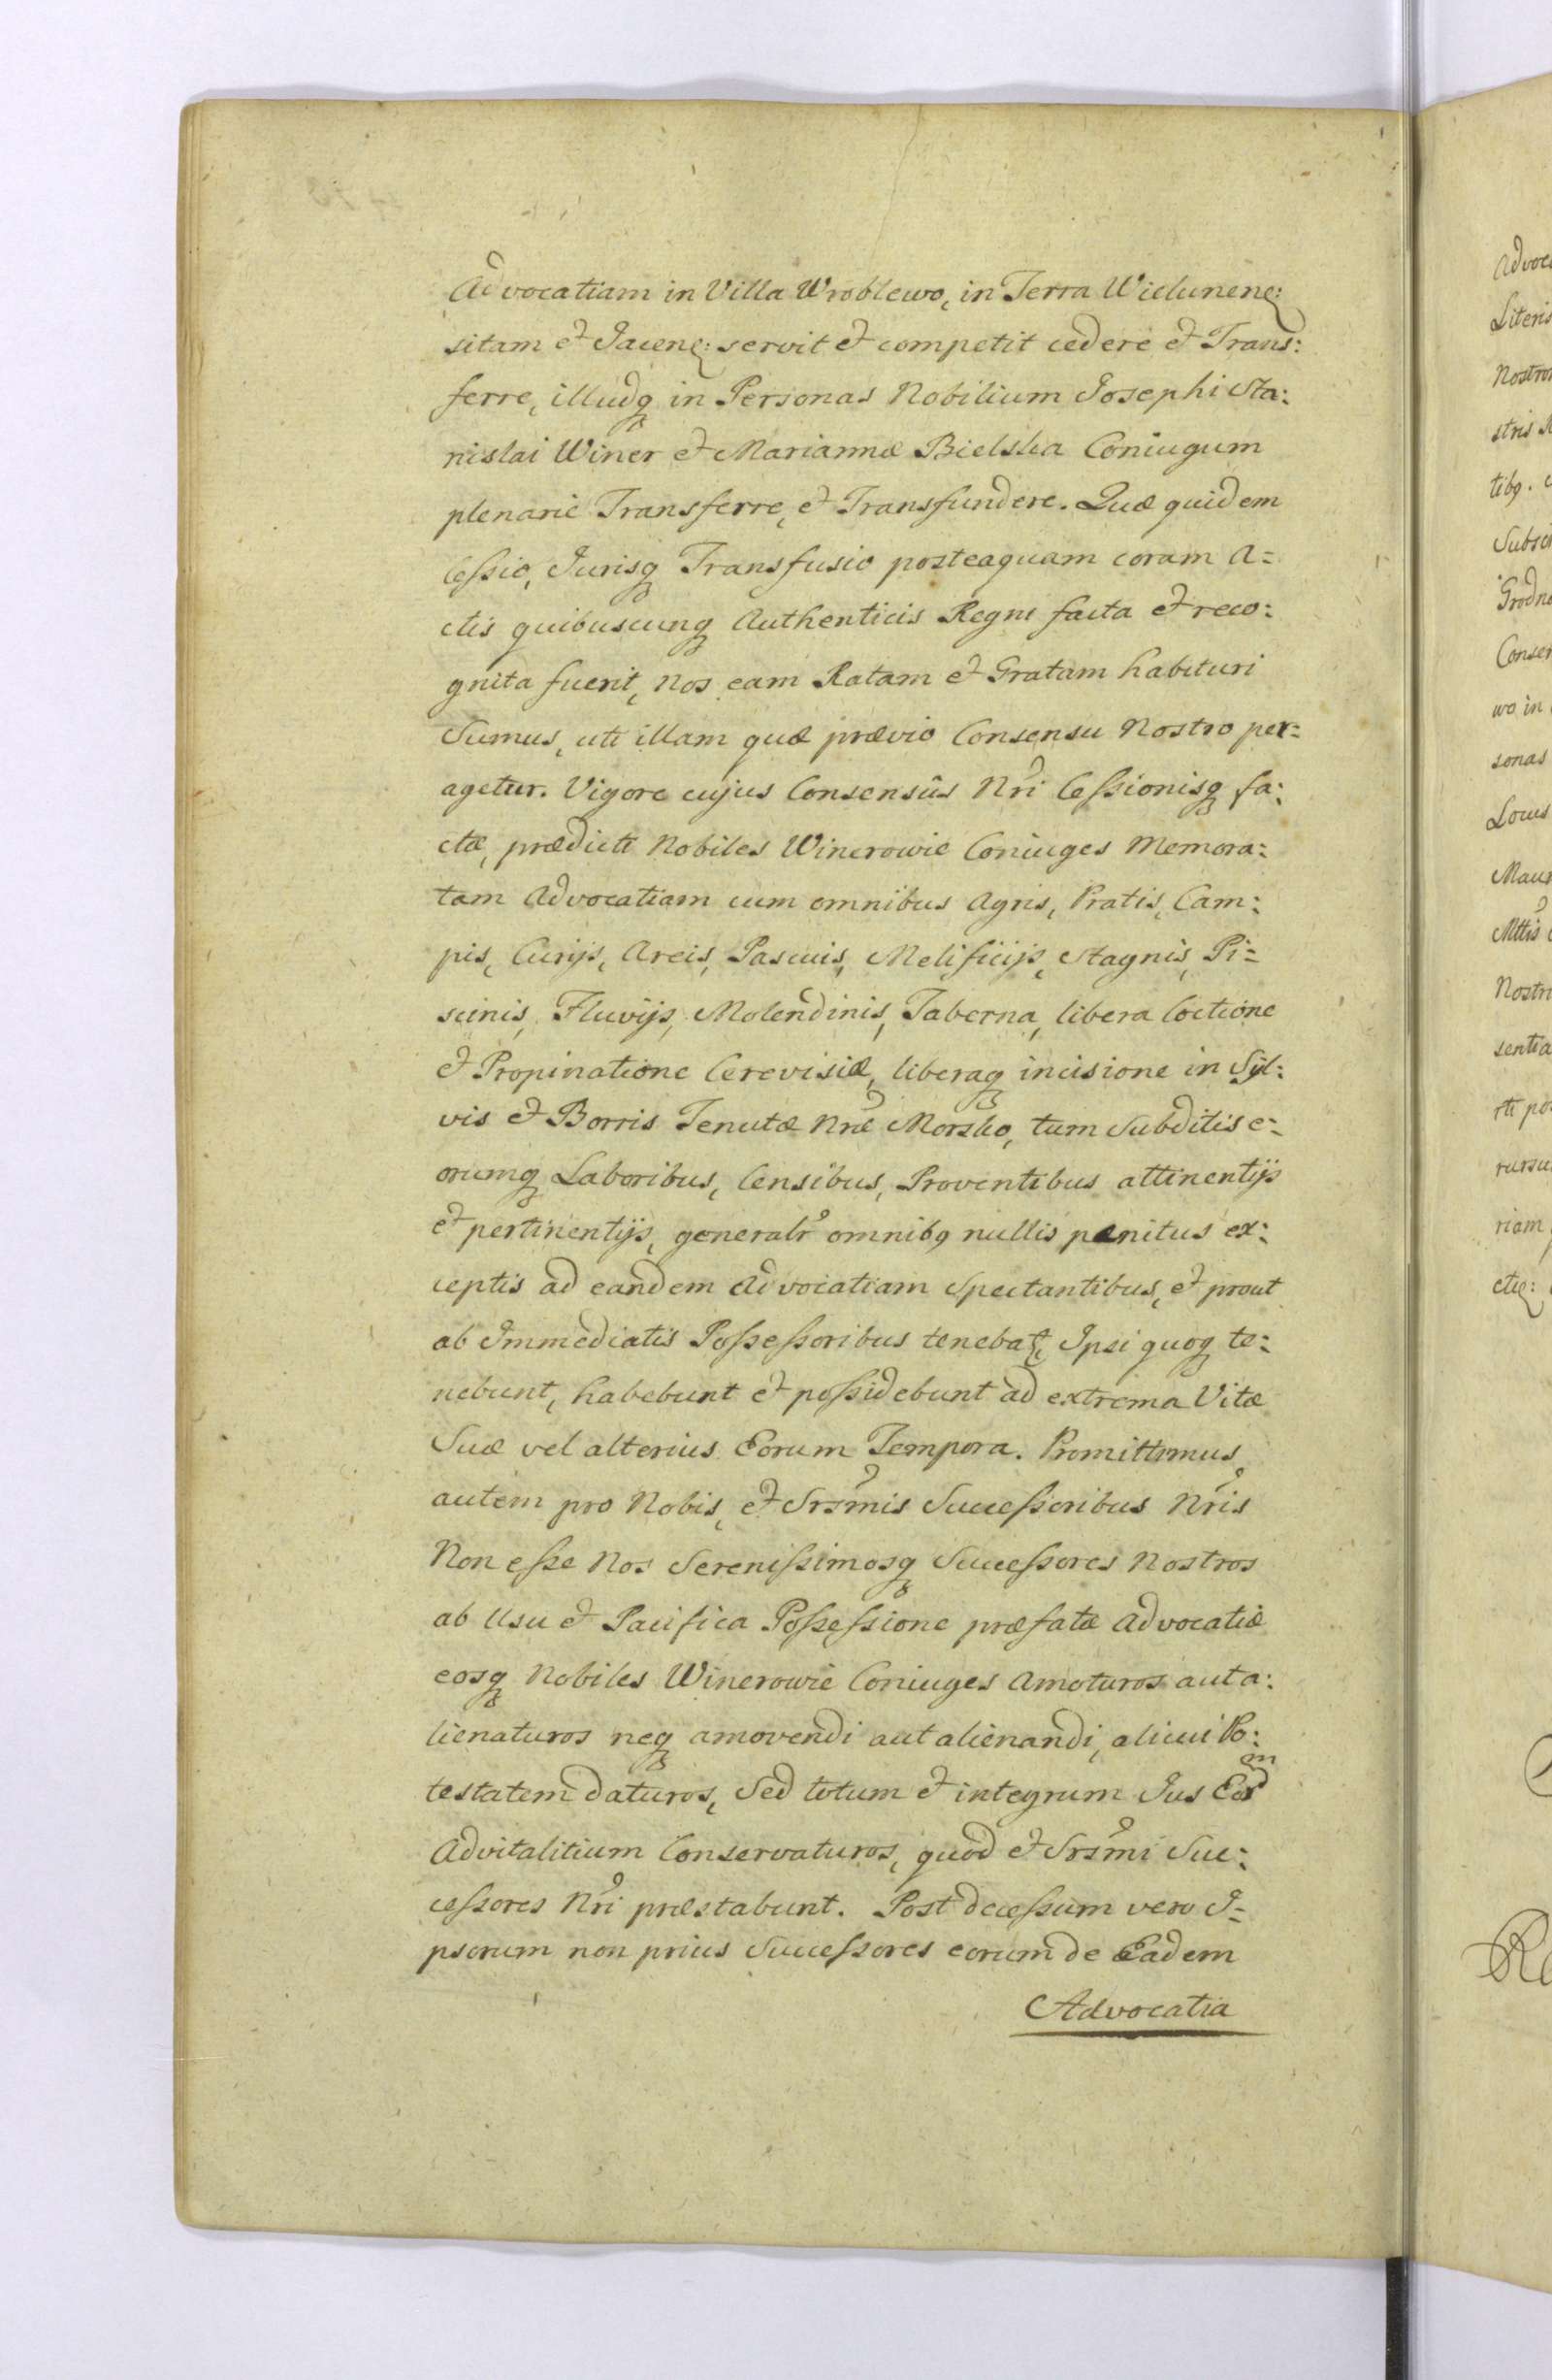 Advocatiam in Villa Wroblewo, in Terra Wielunenę:
sitam et Jacenę: servit et competit cedere et Trans:
ferre, illudq, in Personas Nobilium Josephi Sta:
nislai Winer et Mariannæ Bielska Coniugum
plenarie Transferre, et Transfundere. Quæ quidem
Ceſsio, Jurisq, Transfusio posteaquam coram A=
ctis quibuscunq, Authenticis Regni facta et reco:
gnita fuerit, Nos eam Ratam et Gratam habituri
Sumus, uti illam quæ prævio Consensu Nostro per=
agetur. Vigore cujus Consensûs Nri Ceſsionisq, fa:
ctæ, prædicti Nobiles Winerowie Coniuges Memora:
tam Advocatiam cum omnibus Agris, Pratis, Cam:
pis, Curijs, Areis, Pascuis, Melificijs, Stagnis, Pi=
scinis, Fluvijs, Molendinis, Taberna, libera Coctione
et Propinatione Cerevisiæ, liberaq, incisione in Syl:
vis et Borris Tenutæ Nræ Morsko, tum Subditis e=
orumq, Laboribus, Censibus, Proventibus attinentijs
et pertinentijs, generalr omnibꝯ nullis penitus ex:
ceptis ad eandem Advocatiam Spectantibus, et prout
ab Immediatis Poſseſsoribus tenebat, Ipsi quoq, te:
nebunt, habebunt et poſsidebunt ad extrema Vitæ
Suæ vel alterius Eorum Tempora. Promittimus
autem pro Nobis, et Srsmis Succeſsoribus Nris
Non eſse Nos Sereniſsimosq, Succeſsores Nostros
ab Usu et Pacifica Poſseſsione præfatæ Advocatiæ
eosq, Nobiles Winerowie Coniuges Amoturos aut a:
lienaturos neq, amovendi aut alienandi, alicui Po:
testatem daturos, Sed totum et integrum Jus Eordm
Advitalitium Conservaturos, quod et Srsmi Suc:
ceſsores Nri præstabunt. Post deceſsum vero I=
psorum non prius Succeſsores eorum de Eadem
Advocatia
Literis
wo in
sonas
sentia
riam